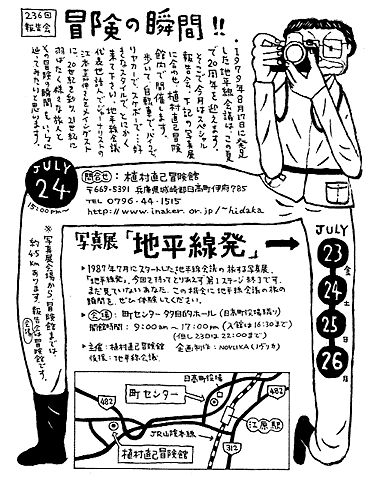 236回
報告会
冒険の瞬間!!
1979年8月17日に発足
した地平線会議はこの夏
で20周年を迎えます。
そこで今月はスペシャル
に、報告会、下記の写真展
に合わせ、植村直己冒険
館内で開催します。
歩いて、自転車で、バイクで、
リヤカーで、スケボーで…好
きなスタイルで、とにかく
来て下さい!! 地平線会議
代表世話人でジャーナリスト
の江本嘉伸さんをメインゲスト
に、20世紀を斬り、21世紀に
羽ばたく様々な旅人と
その「冒険の瞬間」を、いっしょに
辿ってみたいと思います。
JULY
24
15:00PM〜
問合せ:植村直己冒険館
〒669-5391 兵庫県城崎郡日高町伊府785
TEL 0796-44-1515
http://www.inaker.or.jp/~hidaka
写真展「地平線発」→
JULY
23 金
24 土
25 日
26 月
▶1987年7月にスタートした地平線会議の旅する写真展、
「地平線発」。今回を持ってとりあえず第1ステージ終了です。
まだ見ていないあなた、この機会に地平線会議の旅の
瞬間を、ぜひ体験してください。
▶会場:町センター多目的ホール(日高町役場隣り)
開館時間:9:00am〜17:00pm(入館は16:30まで)
(但し23日は22:00まで)
▶主催:植村直己冒険館 企画制作:NOVLIKA(ノヴリカ)
後援:地平線会議
※写真展会場から、冒険館までは
約4.5kmあります。報告会は冒険館です。
会議
日高町役場
町センター
482
482
JR山陰本線
江原駅
312
植村直己冒険館